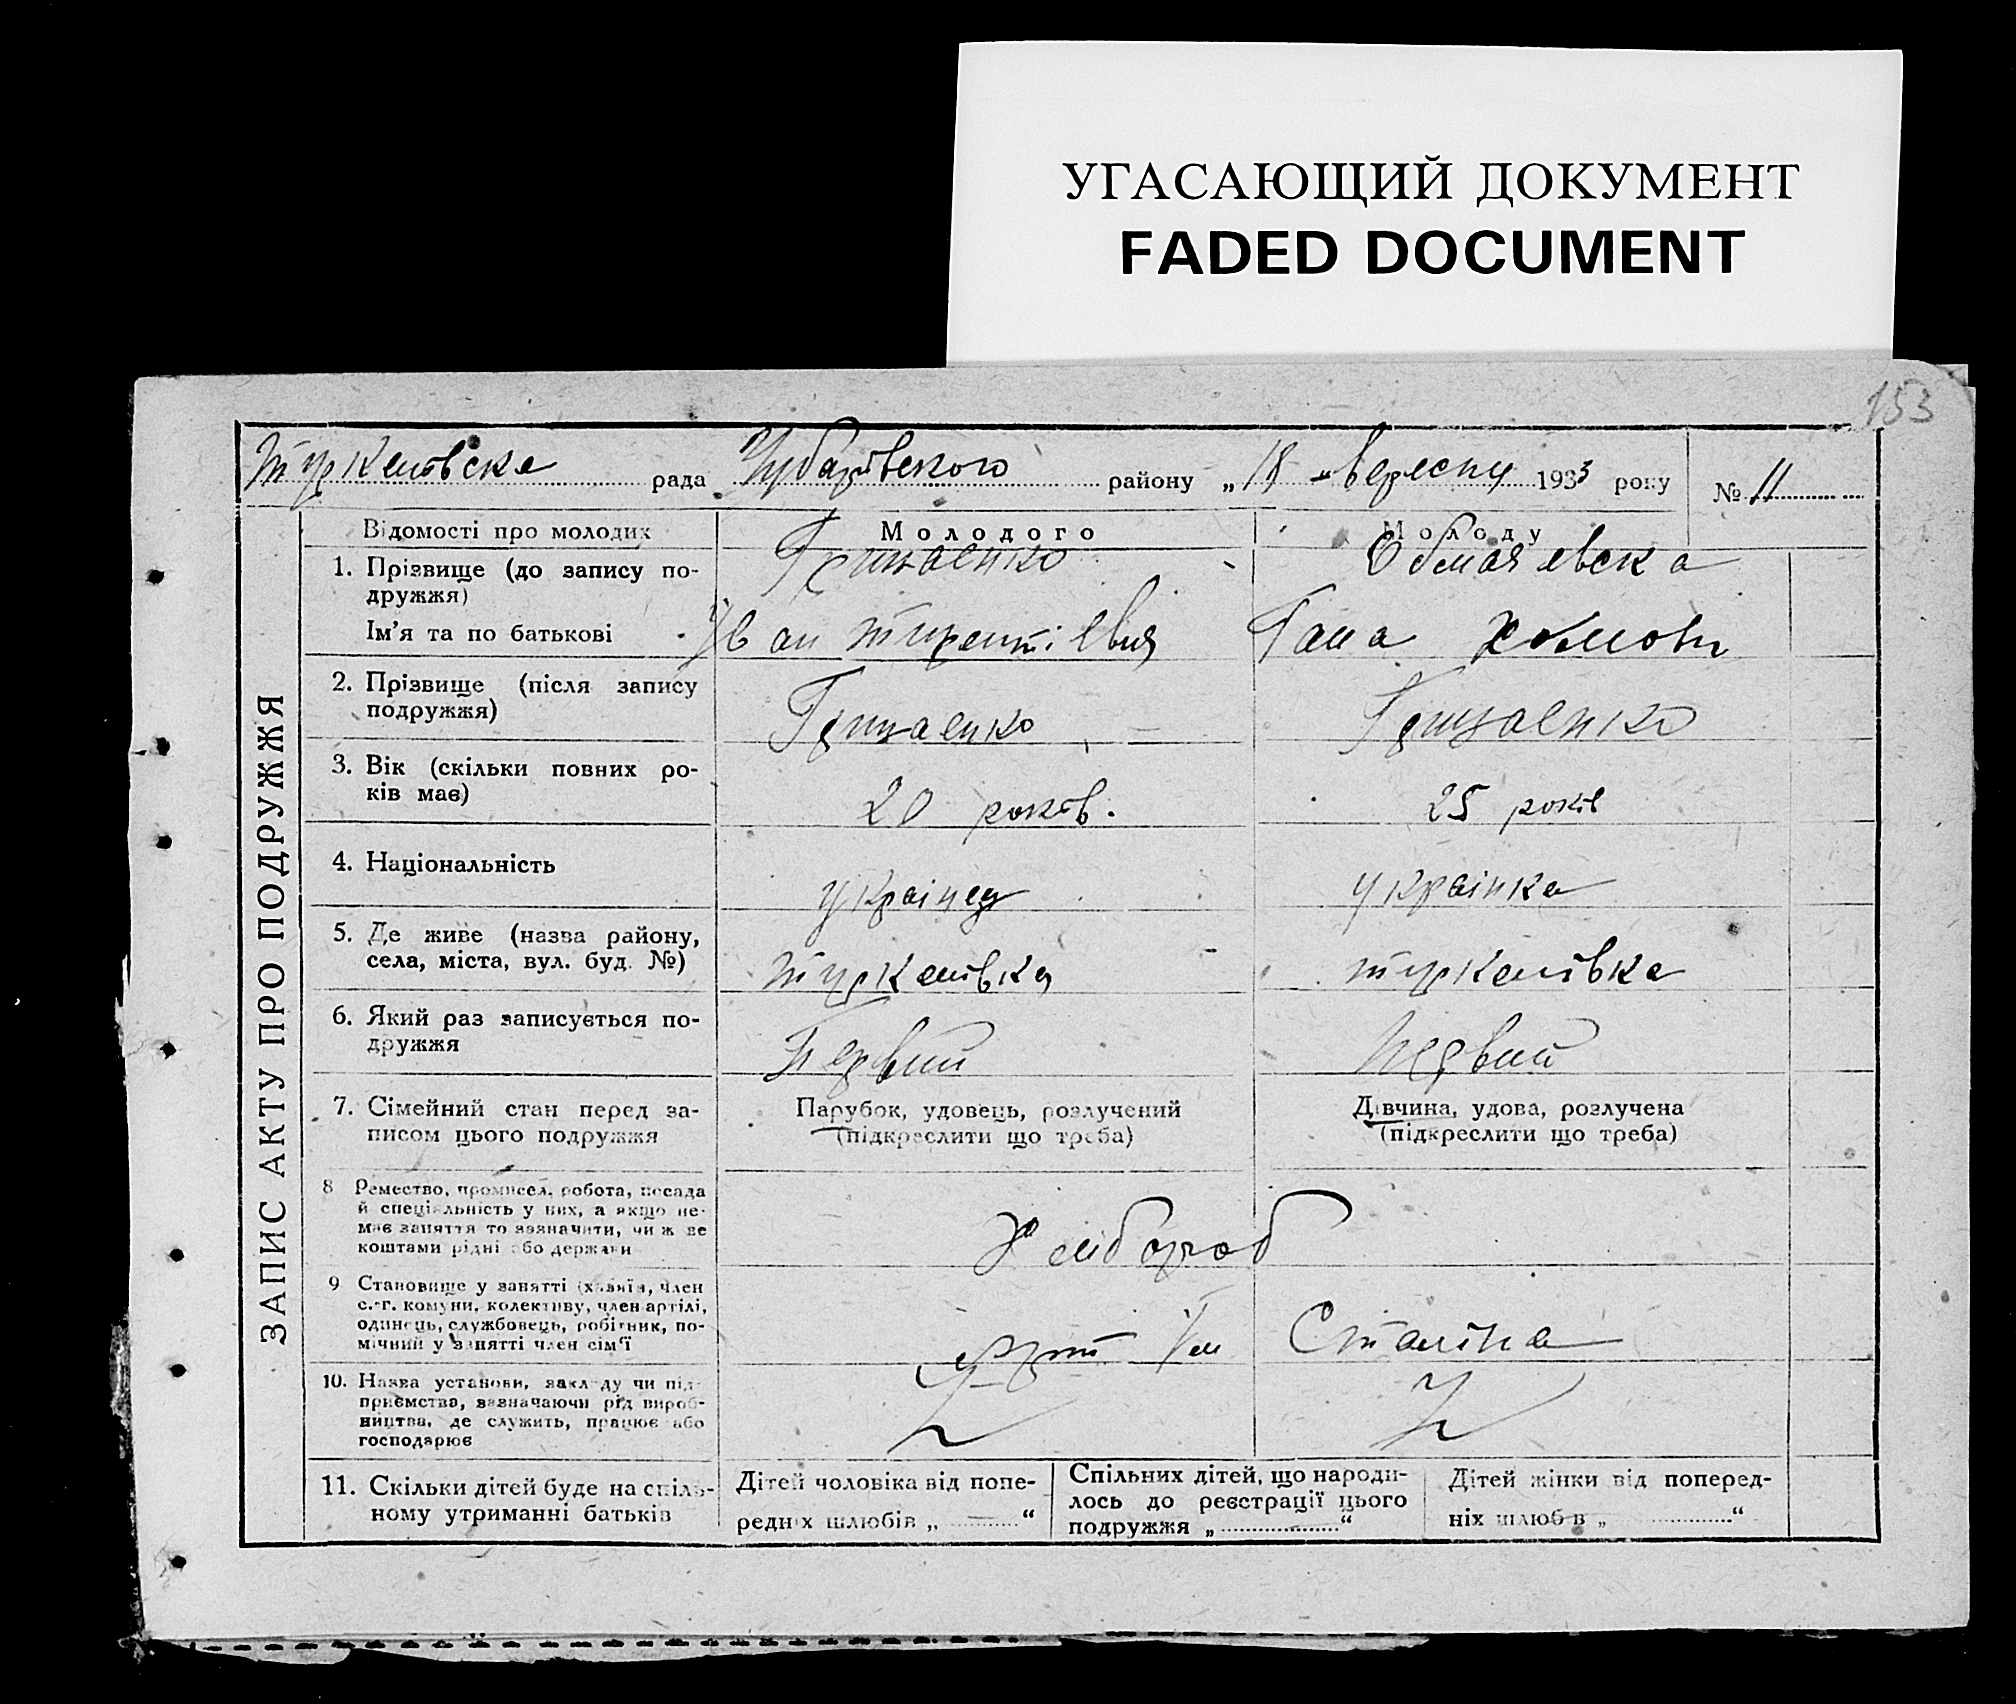 УГАСАЮЩИЙ ДОКУМЕНТ
FADED DOCUMENT
153
Туркенівска рада Чубарівского району „18" вересня 1933 року № 11
ЗАПИС АКТУ ПРО ПОДРУЖЖЯ
Відомості про молодих
Молодого
Молоду
1. Прізвище (до запису по-
дружжя)
Ім'я та по батькові
Грицаенко
Іван
Гана
2. Прізвище (після запису
подружжя)
Грицаенко
Грицаенко
3. Вік (скільки повних ро-
ків має)
20 років.
25 років
4. Національність
українец
українка
5. Де живе (назва району,
села, міста, вул. буд. №)
Туркенівка
Туркенівка
6. Який раз записується по-
дружжя
Первий
Первий
7. Сімейний стан перед за-
писом цього подружжя
Парубок, удовець, розлучений
(підкреслити що треба)
Дівчина, удова, розлучена
(підкреслити що треба)
8 Ремество, промисел, робота, посада
й спеціяльність у них, а якщо не-
має заняття то зазначити, чи ж не
коштами рідні або держави
Хлібороб
9 Становище у занятті (хазяїн, член
с.-г. комуни, колективу, член артілі,
одинець, службовець, робітник, по-
мічний у занятті член сім'ї
Арт Ім Сталіна
10. Назва установи, закладу чи під-
приємства, зазначаючи рід вироб-
ництва, де служить, працює або
господарює
11. Скільки дітей буде на спіль-
ному утриманні батьків
Дітей чоловіка від попе-
редніх шлюбів „ “
Спільних дітей, що народи-
лось до реєстрації цього
подружжя „ “
Дітей жінки від поперед-
ніх шлюбів „ “